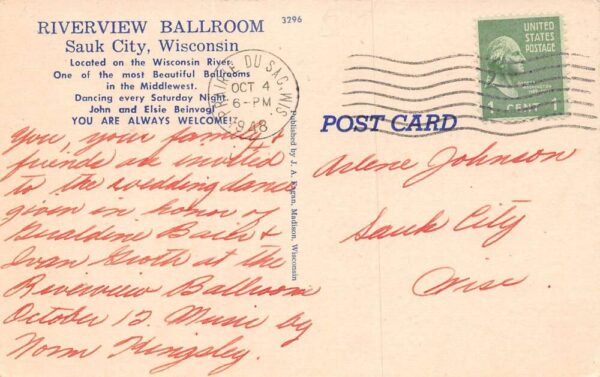 RIVERVIEW BALLROOM
Sauk City, Wisconsin
Located on the Wisconsin River
One of the most Beautiful Ballrooms
in the Middlewest.
Dancing every Saturday Night
John and Elsie Beinvogl
YOU ARE ALWAYS WELCOME!
3296
PRAIRIE DU SAC, WIS.
OCT 4
6-PM
1948
UNITED
STATES
POSTAGE
1 CENT 1
POST CARD
Published by J. A. Fagan, Madison, Wisconsin
You, your family &
friends are invited
to the wedding dance
given in honor of
Geraldine Bauer &
Ivan Groth at the
Riverview Ballroom
October 12. Music by
Norm Kingsley.
Arlene Johnson
Sauk City
Wisc